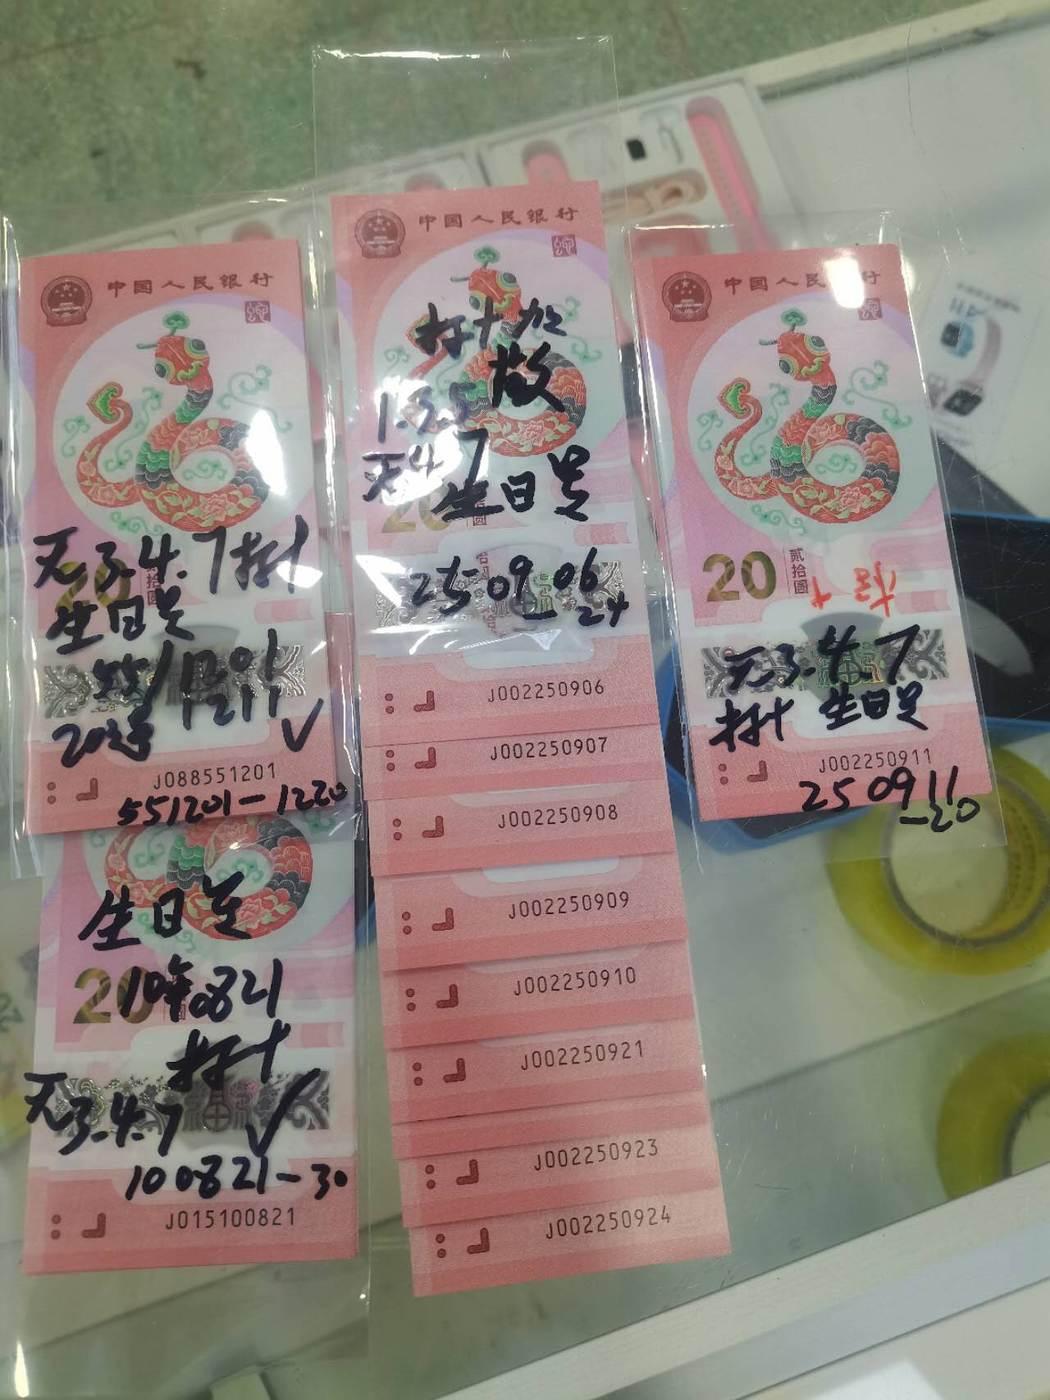 中国人民银行
20
无3.4.7标十
生日号
1201
1211
J088551201
551201-1220
生日号
20
10年0821
标十
无3.4.7
100821-30
J015100821
中国人民银行
标十加
散
无4 7
生日号
20
250906
-24
J002250906
J002250907
J002250908
J002250909
J002250910
J002250921
J002250923
J002250924
中国人民银行
20
贰拾圆
无3.4.7
标十 生日号
J002250911
250911
-20